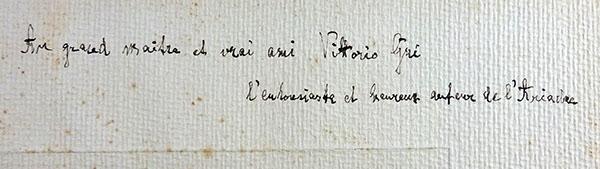 Au grand maitre et vrai ami Vittorio Gui
l'enthousiaste et heureux auteur de l'Ariadne